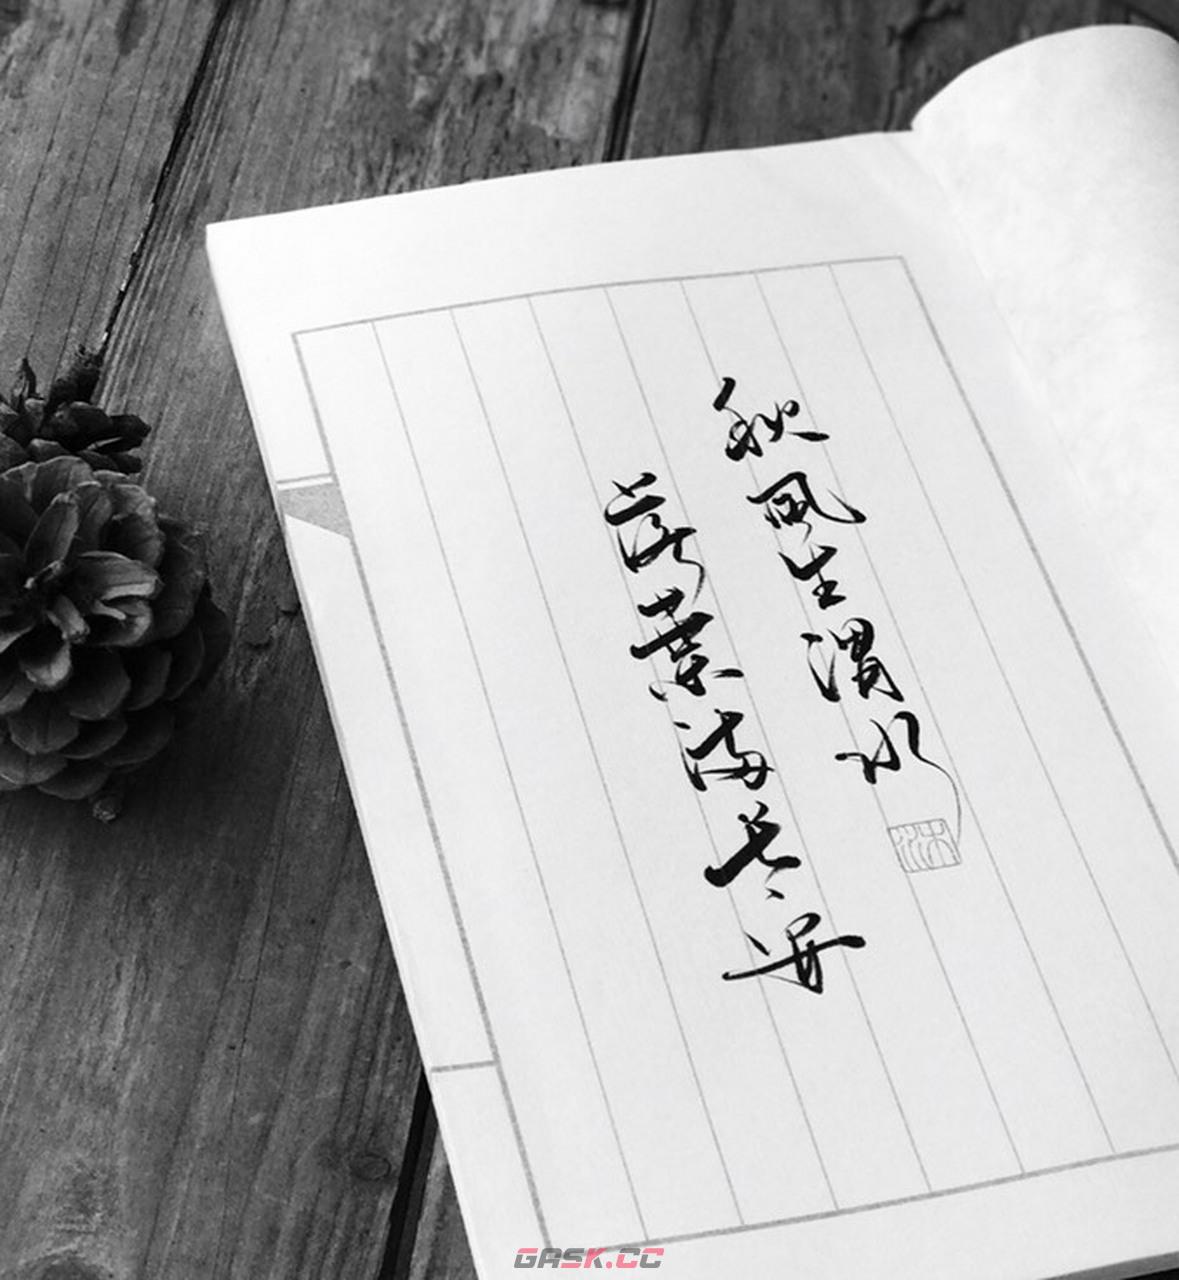 秋风生渭水
落葉满长安
GASK.CC